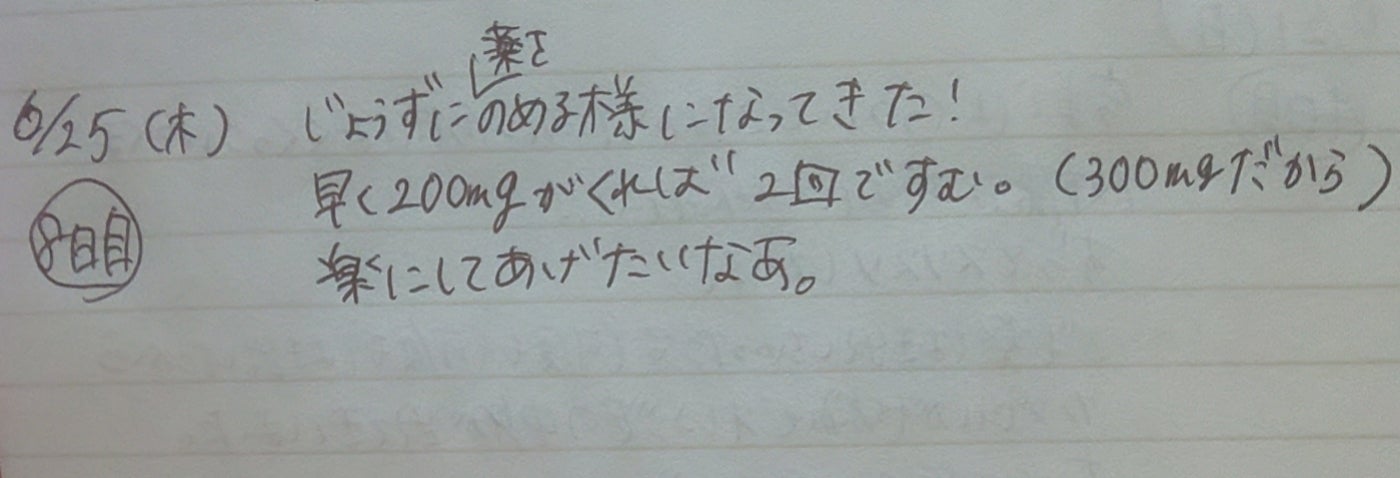 6/25(木) じょうずに薬をのめる様になってきた!
8日目 早く200mgがくれば"2回ですむ。(300mgだから)
楽にしてあげたいなあ。